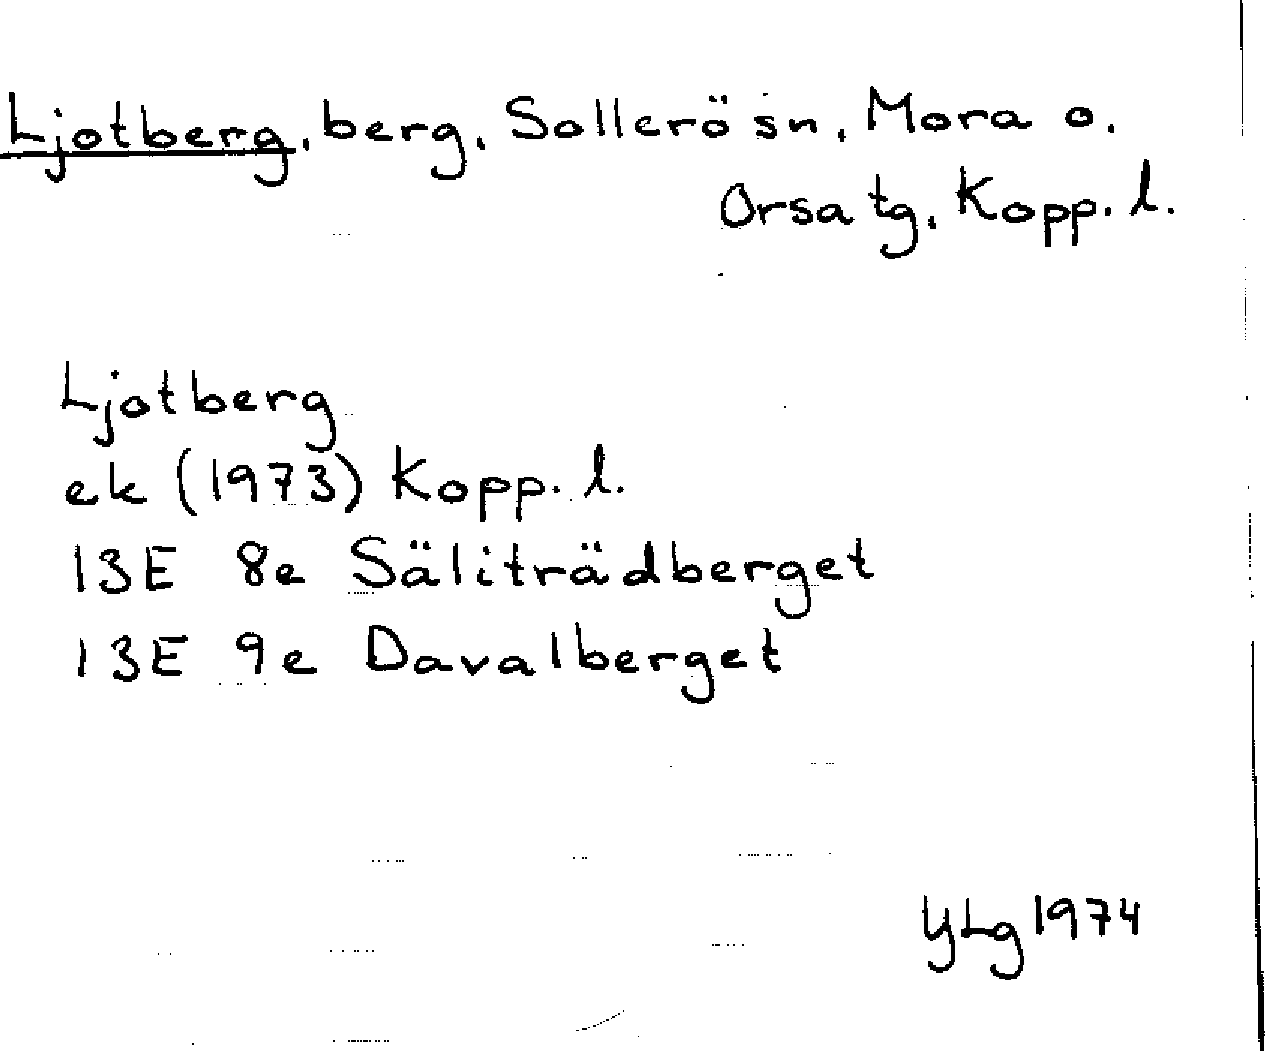 Ljotberg, berg, Sollerö sn, Mora o.
Orsa tg, Kopp. l.
Ljotberg
ek (1973) Kopp. l.
13E 8e Säliträdberget
13E 9e Davalberget
YLg 1974